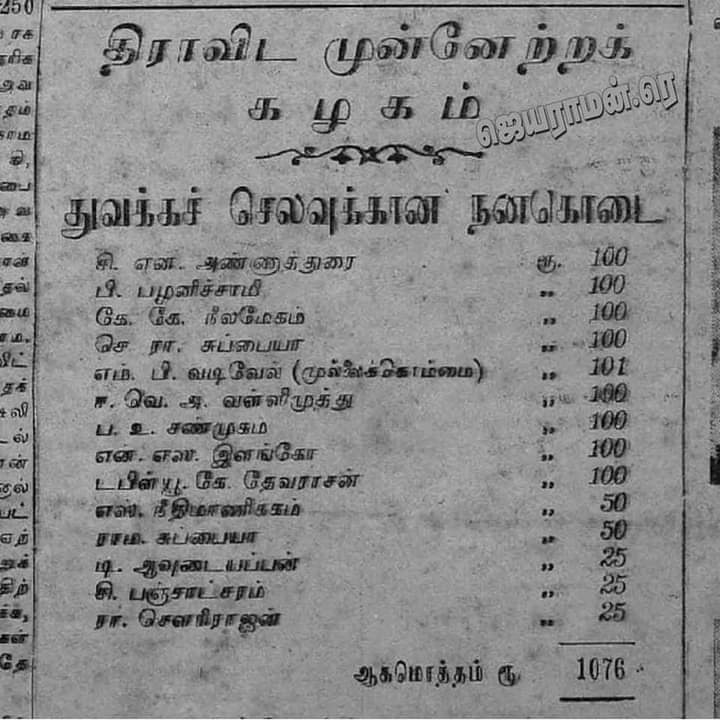 250
திராவிட முன்னேற்றக்
கழகம்
ஜெயராமன்.ரெ
துவக்கச் செலவுக்கான நன்கொடை
சி. என். அண்ணாத்துரை ரூ. 100
பி. பழனிச்சாமி ,, 100
கே. கே. நீலமேகம் ,, 100
செ. ரா. சுப்பையா ,, 100
எம். பி. வடிவேல் (முல்லைக்கொம்மை) ,, 101
ஈ. வெ. அ. வள்ளிமுத்து ,, 100
ப. உ. சண்முகம் ,, 100
என். எஸ். இளங்கோ ,, 100
டபிள்யூ. கே. தேவராசன் ,, 100
எஸ். நீதிமாணிக்கம் ,, 50
ராம. சுப்பையா ,, 50
டி. ஆவுடையப்பன் ,, 25
சி. பஞ்சாட்சரம் ,, 25
ரா. சௌரிராஜன் ,, 25
ஆகமொத்தம் ரூ. 1076